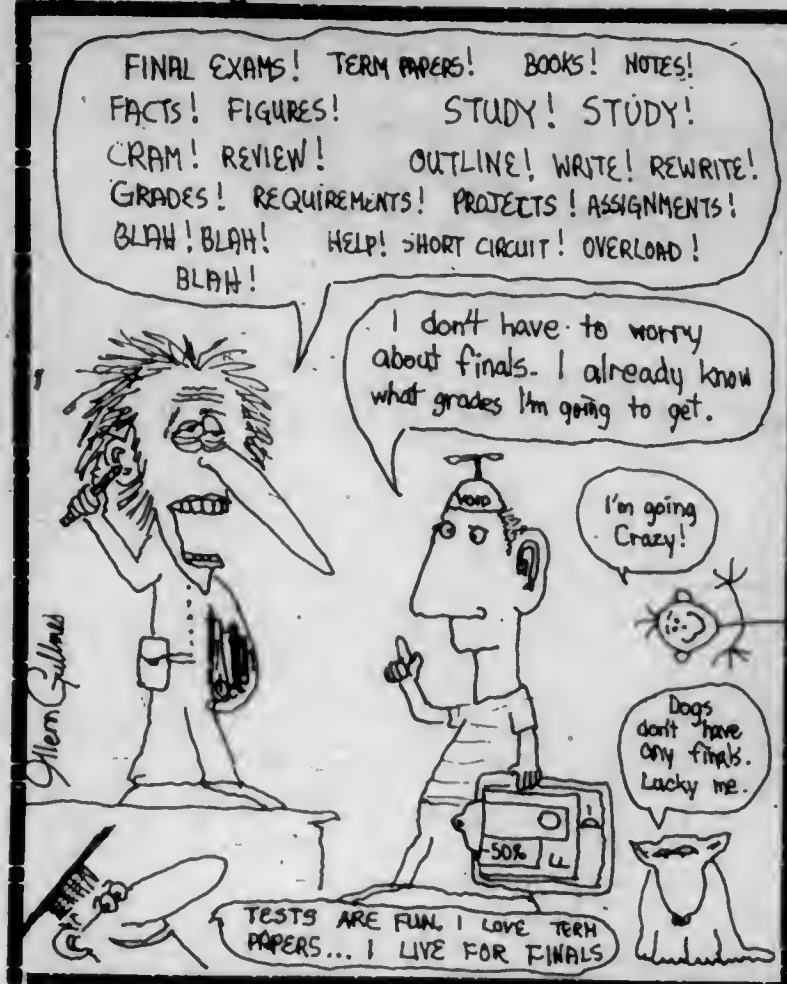 FINAL EXAMS! TERM PAPERS! BOOKS! NOTES!
FACTS! FIGURES! STUDY! STUDY!
CRAM! REVIEW! OUTLINE! WRITE! REWRITE!
GRADES! REQUIREMENTS! PROJECTS! ASSIGNMENTS!
BLAH! BLAH! HELP! SHORT CIRCUIT! OVERLOAD!
BLAH!
I don't have to worry
about finals. I already know
what grades I'm going to get.
VOID
I'm going
Crazy!
Dogs
don't have
any finals.
Lucky me.
-50%
F
TESTS ARE FUN. I LOVE TERM
PAPERS... I LIVE FOR FINALS